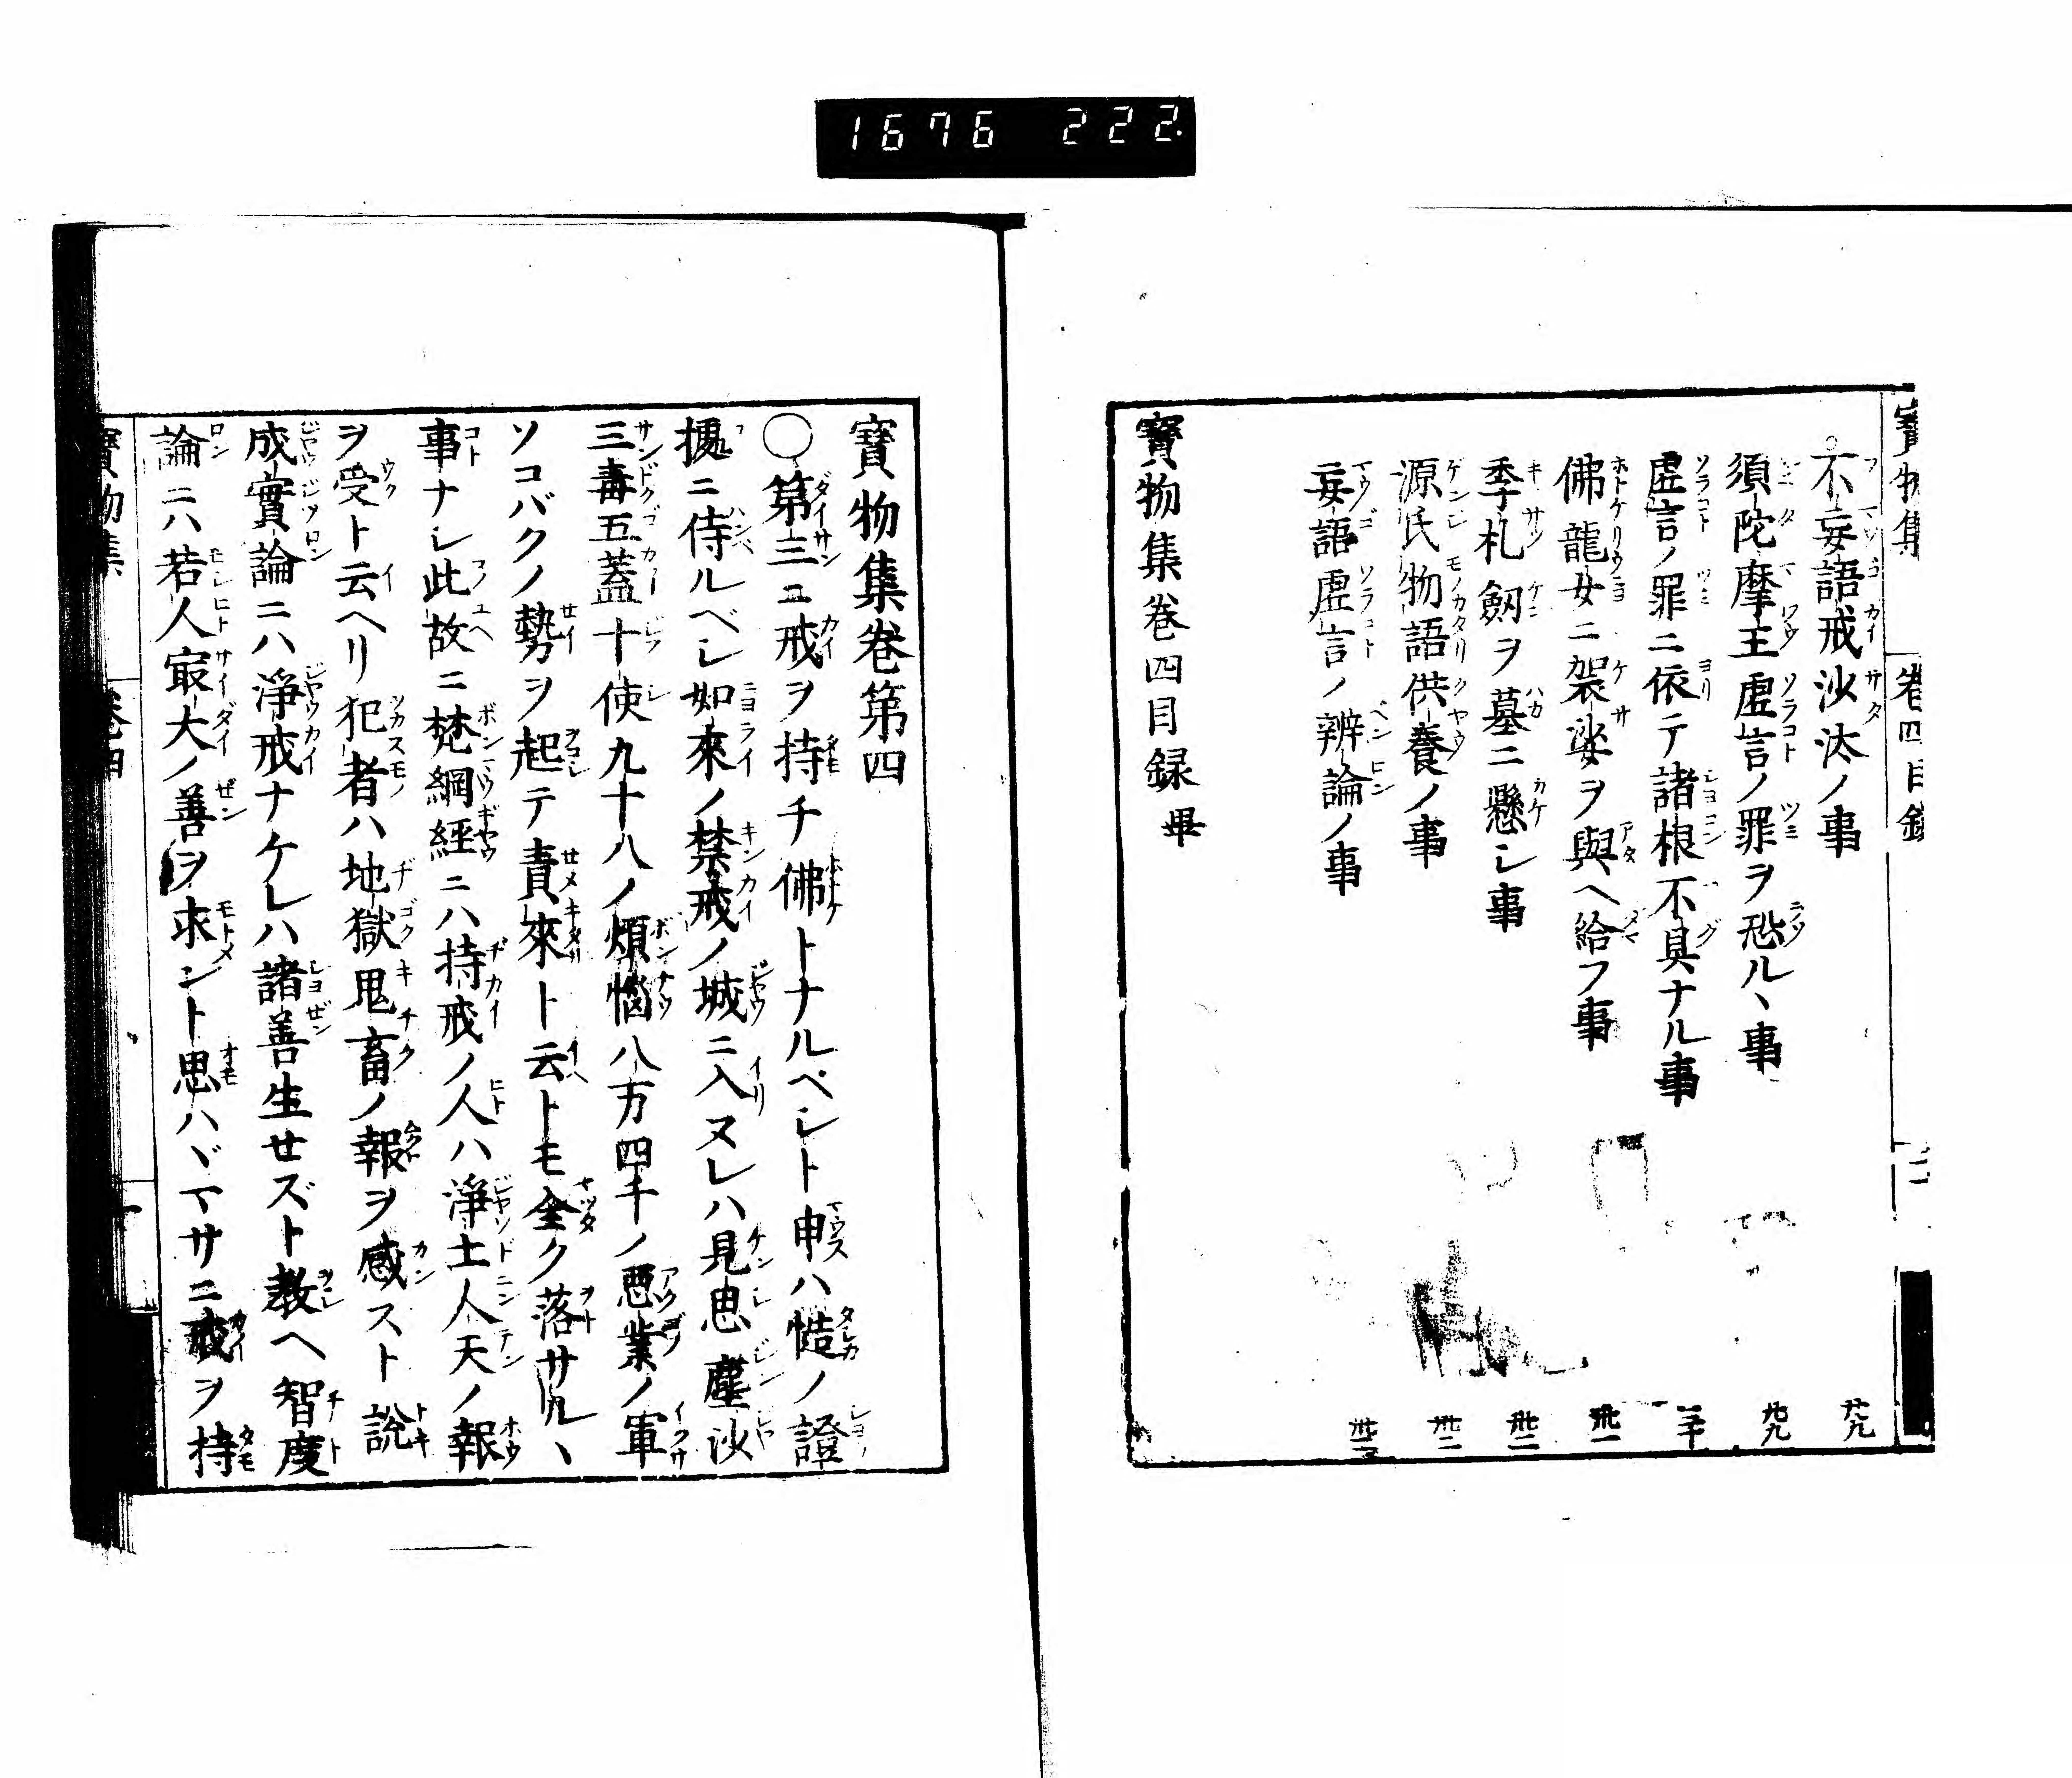 1676 222
寳物集 卷四目録 二
不妄語戒沙汰ノ事 廿九
須陀摩王虚言ノ罪ヲ恐ル丶事 廿九
虚言ノ罪ニ依テ諸根不具ナル事 三十
佛龍女ニ袈裟ヲ與ヘ給フ事 卅一
季札劔ヲ墓ニ懸シ事 卅二
源氏物語供養ノ事 卅二
妄語虚言ノ辨論ノ事
寳物集卷四目録畢
寳物集卷第四
○第三ニ戒ヲ持チ佛トナルベシト申ハ慥ノ證
據ニ侍ルベシ如來ノ禁戒ノ城ニ入ヌレハ見思塵沙
三毒五蓋十使九十八ノ煩惱八万四千ノ惡業ノ軍
ソコバクノ勢ヲ起テ責來ト云トモ全ク落サル丶
事ナシ此故ニ梵網經ニハ持戒ノ人ハ淨土人天ノ報
ヲ受ト云ヘリ犯者ハ地獄鬼畜ノ報ヲ感スト說
成實論ニハ淨戒ナケレハ諸善生セズト教ヘ智度
論ニハ若人㝡大ノ善ヲ求ント思ハヾマサニ戒ヲ持
寳物集 卷四